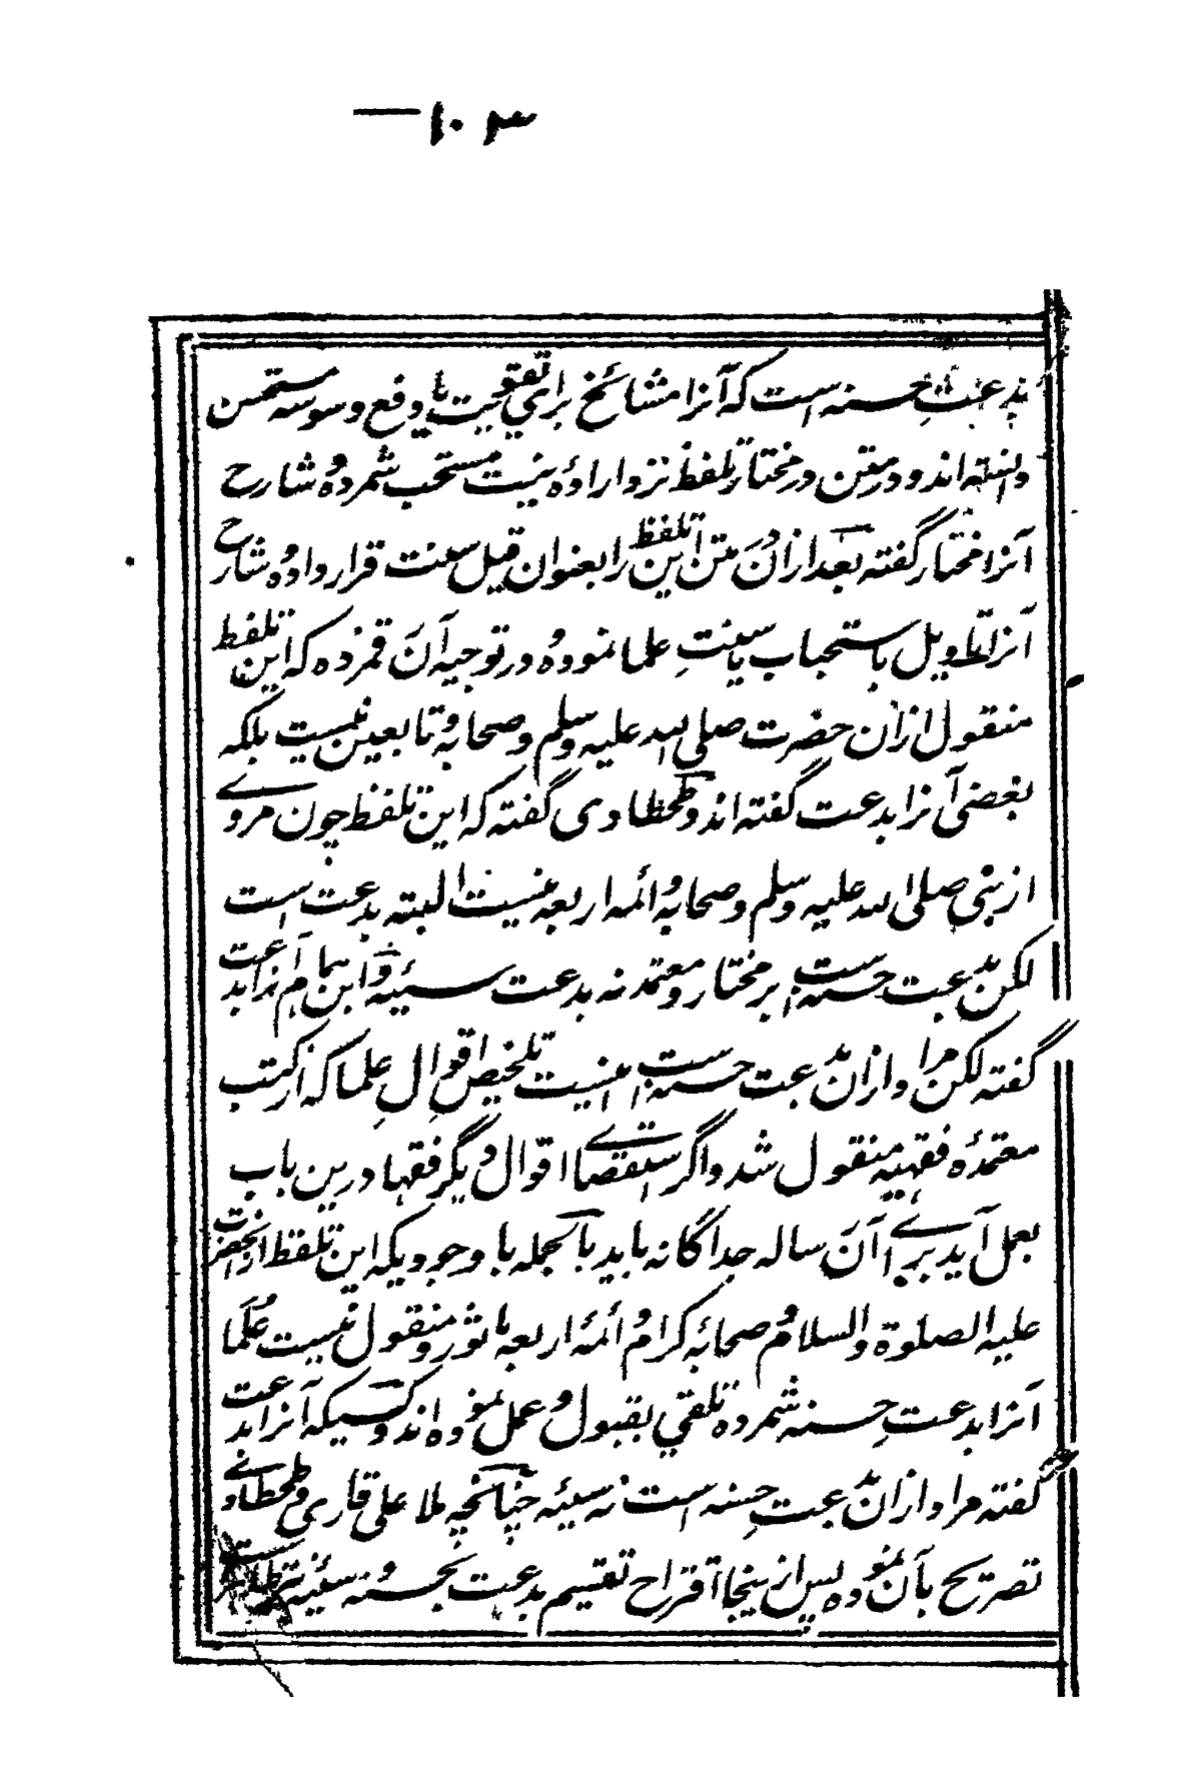 ۱۰۳
بدعت حسنه است که آنرا مشائخ برای تقویت یا دفع وسوسه مستحسن
دانسته اند و در متن در مختار تلفظ نزد اراده نیت مستحب شمرده شارح
آنرا مختار گفته بعد ازان در متن این تلفظ را بعنوان قیل سنت قرار داده شارح
آنرا بتاویل باستحباب یا سنت علما نموده و در توجیه آن رقم زده که این تلفظ
منقول از آن حضرت صلی الله علیه وسلم وصحابه وتابعین نیست بلکه
بعضی آنرا بدعت گفته اند و طحطاوی گفته که این تلفظ چون مروے
از نبی صلی الله علیه وسلم وصحابه وائمه اربعه نیست البته بدعت است
لکن بدعت حسنه است بر مختار و معتمد نه بدعت سیئه وابن همام آنرا بدعت
گفته لکن مراد ازان بدعت حسنه است اینست تلخیص اقوال علما که از کتب
معتمدهٔ فقهیه منقول شد و اگر استقصاے اقوال دیگر فقها درین باب
بعمل آید براے آن رساله جداگانه باید بالجمله با وجودیکه این تلفظ از آنحضرت
علیه الصلوة والسلام وصحابهٔ کرام وائمهٔ اربعه ماثور و منقول نیست علما
آنرا بدعت حسنه شمرده تلقی بقبول و عمل نموده اند و کسیکه آنرا بدعت
گفته مراد ازان بدعت حسنه است نه سیئه چنانچه ملا علی قاری و طحطاوے
تصریح بآن نموده پس ازینجا اقتراح تقسیم بدعت بحسنه و سیئه